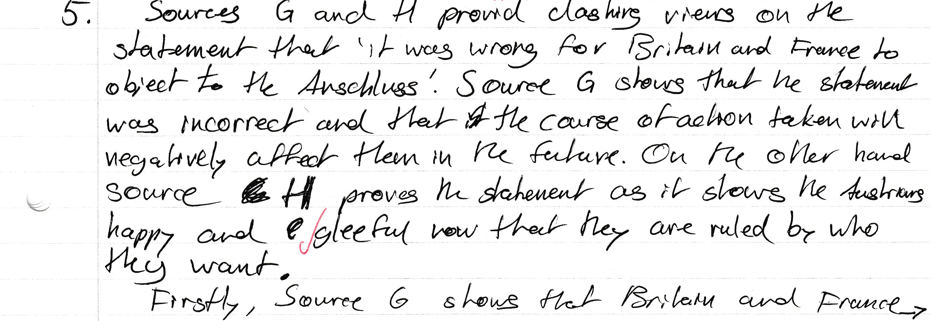 5. Sources G and H provid clashing views on the
statement that 'it was wrong for Britain and France to
object to the Anschluss'. Source G shows that he statement
was incorrect and that the course of action taken will
negatively affect them in the future. On the other hand
source H proves the statement as it shows the Austrians
happy and gleeful now that they are ruled by who
they want.
Firstly, Source G shows that Britain and France →